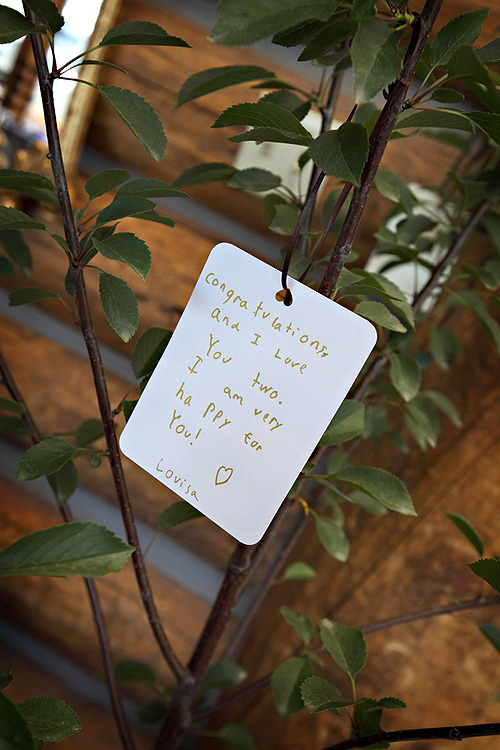 congratulations,
and I Love
You two.
I am very
happy for
You!
Lovisa ♡